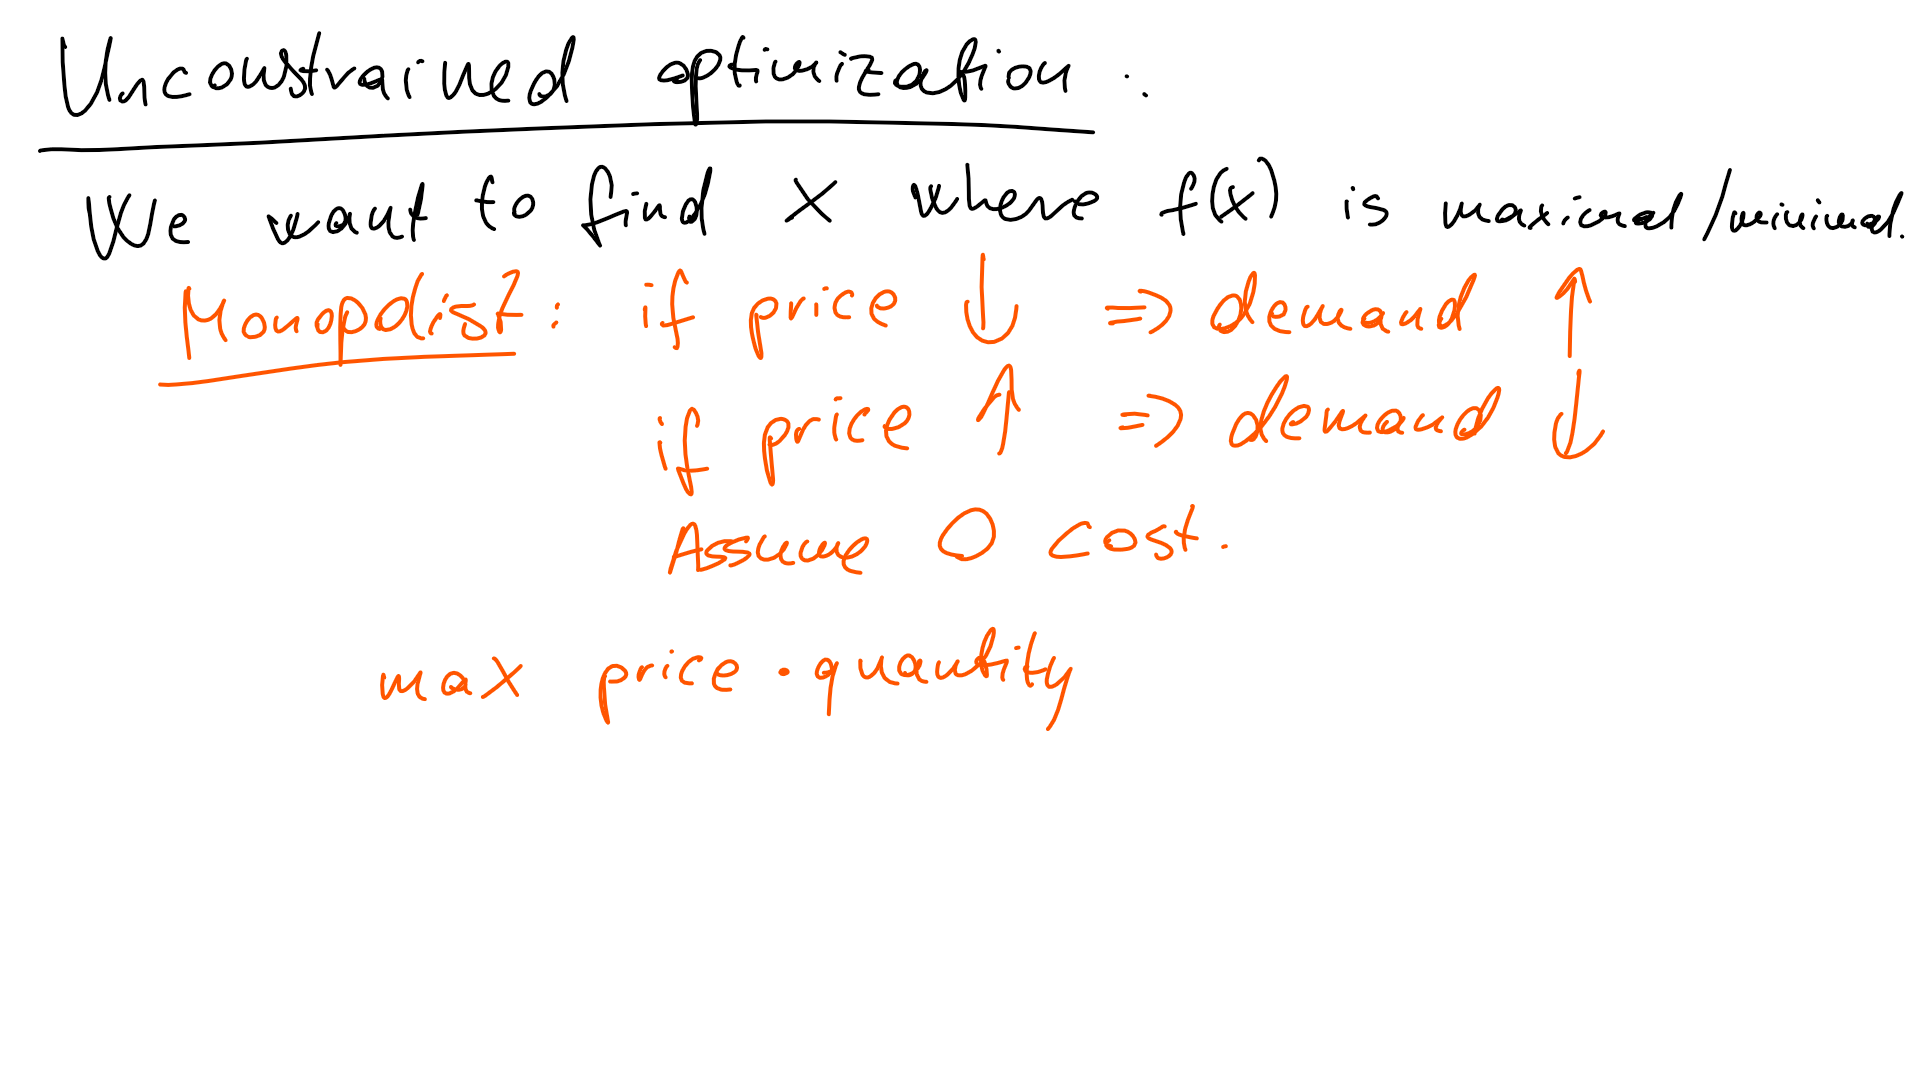 Unconstrained optimization :
We want to find x where f(x) is maximal/minimal.
Monopolist: if price ↓ => demand ↑
if price ↑ => demand ↓
Assume 0 cost.
max price · quantity